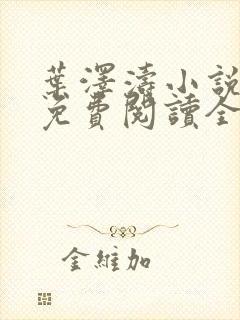 葉澤濤小說
免費閱讀全
金維加